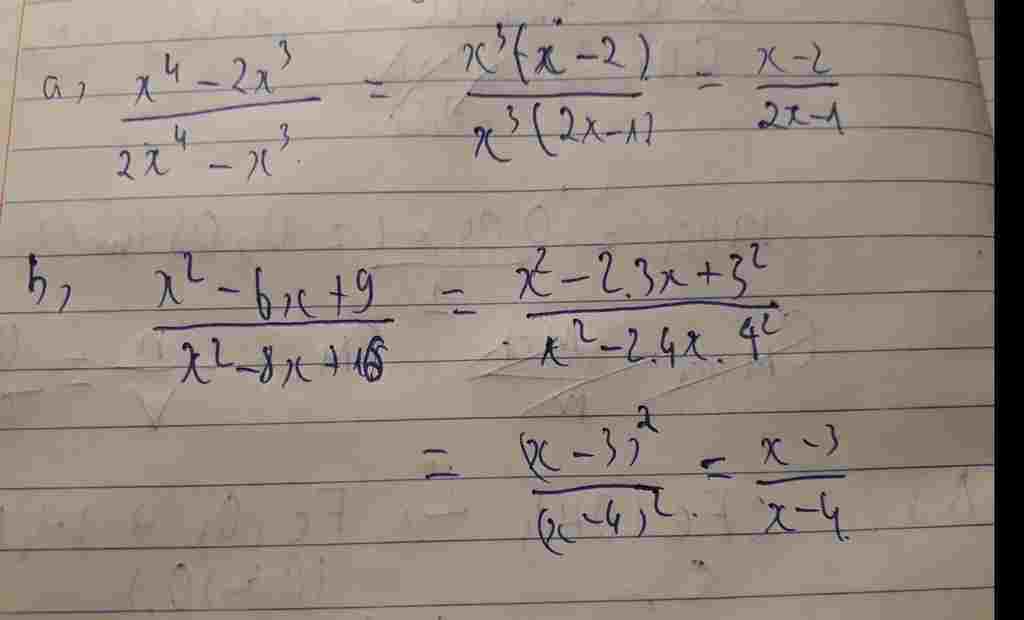 a, \frac{x^4 - 2x^3}{2x^4 - x^3} = \frac{x^3(x - 2)}{x^3(2x - 1)} = \frac{x - 2}{2x - 1}
b, \frac{x^2 - 6x + 9}{x^2 - 8x + 16} = \frac{x^2 - 2.3x + 3^2}{x^2 - 2.4x . 4^2}
= \frac{(x - 3)^2}{(x - 4)^2} = \frac{x - 3}{x - 4}